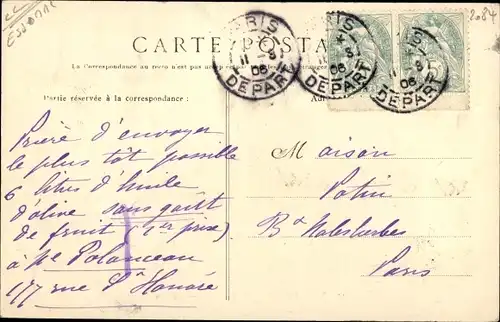 ESSONNE
2084
CARTE POSTA
La Correspondance au recto n'est pas
Partie réservée à la correspondance :
Adr
PARIS
11 - 8
06
DEPART
PARIS
11 - 8
06
DEPART
8
06
DEPART
Prière d'envoyer
le plus tôt possible
6 litres d'huile
d'olive sans goût
de fruit (1er prise)
à Me Polanceau
177 rue St Honoré
Maison
Potin
Bd Malesherbes
Paris